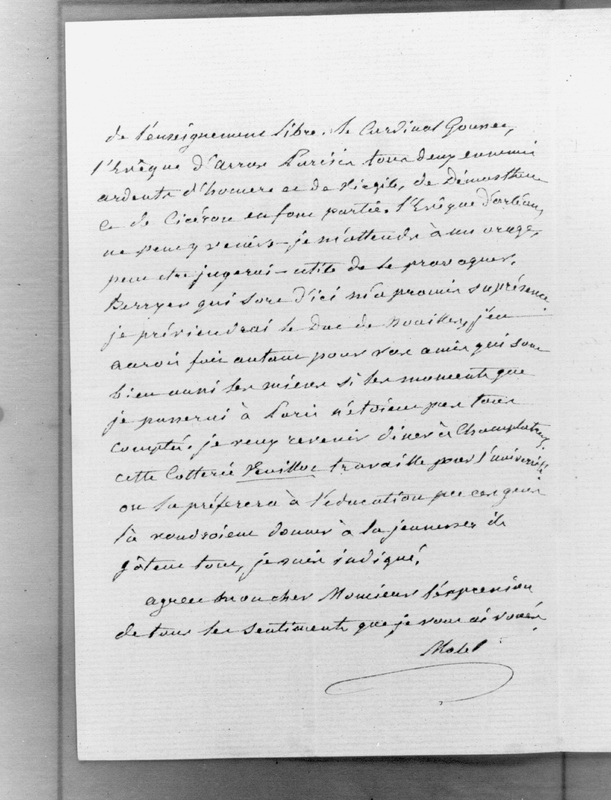 de l'enseignement libre. le Cardinal Gousset,
l'Evêque d'arras Parisis tous deux ennemis
ardents d'homere et de Virgile, de Démosthene
et de Cicéron en font partie. l'Evêque d'orléans
ne peut y venir - je m'attends à un orage,
peut etre jugerai - utile de le provoquer.
Berryer qui sort d'ici m'a promis sa présence
je préviendrai le Duc de Noailles, j'en
aurois fait autant pour vos amis qui sont
bien aussi les miens si les moments que
je passerai à Paris n'étoient pas tous
comptés. je veux revenir diner à Champlatreux.
cette Cotterie Veuillot travaille pour l'université
on la préferera à l'éducation que ces gens
là voudroient donner à la jeunesse ils
gâtent tout, je suis indigné.
agréez mon cher Monsieur l'expression
de tous les sentiments que je vous ai voués
Molé